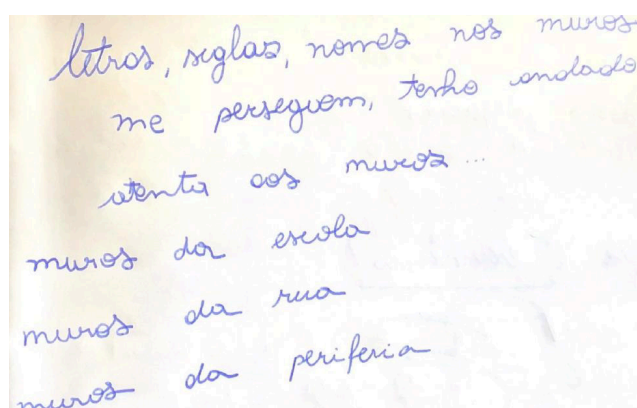 letras, siglas, nomes nos muros
me perseguem, tenho andado
atenta aos muros...
muros da escola
muros da rua
muros da periferia